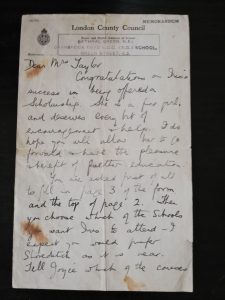 MEMORANDUM
London County Council
BETHNAL GREEN, E.2.
SCHOOL,
Dear Mrs Taylor
Congratulations on Iris's
success in being offered a
Scholarship. She is a fine girl,
and deserves every bit of
encouragement & help. I do
hope you will allow her to go
forward & have the pleasure &
benefit of further education
You are asked first of all
to fill in page 3 of the form
and the top of page 2. Then
you choose which of the Schools
you want Iris to attend - I
expect you would prefer
Shoreditch as it is near.
Tell Joyce which of the courses